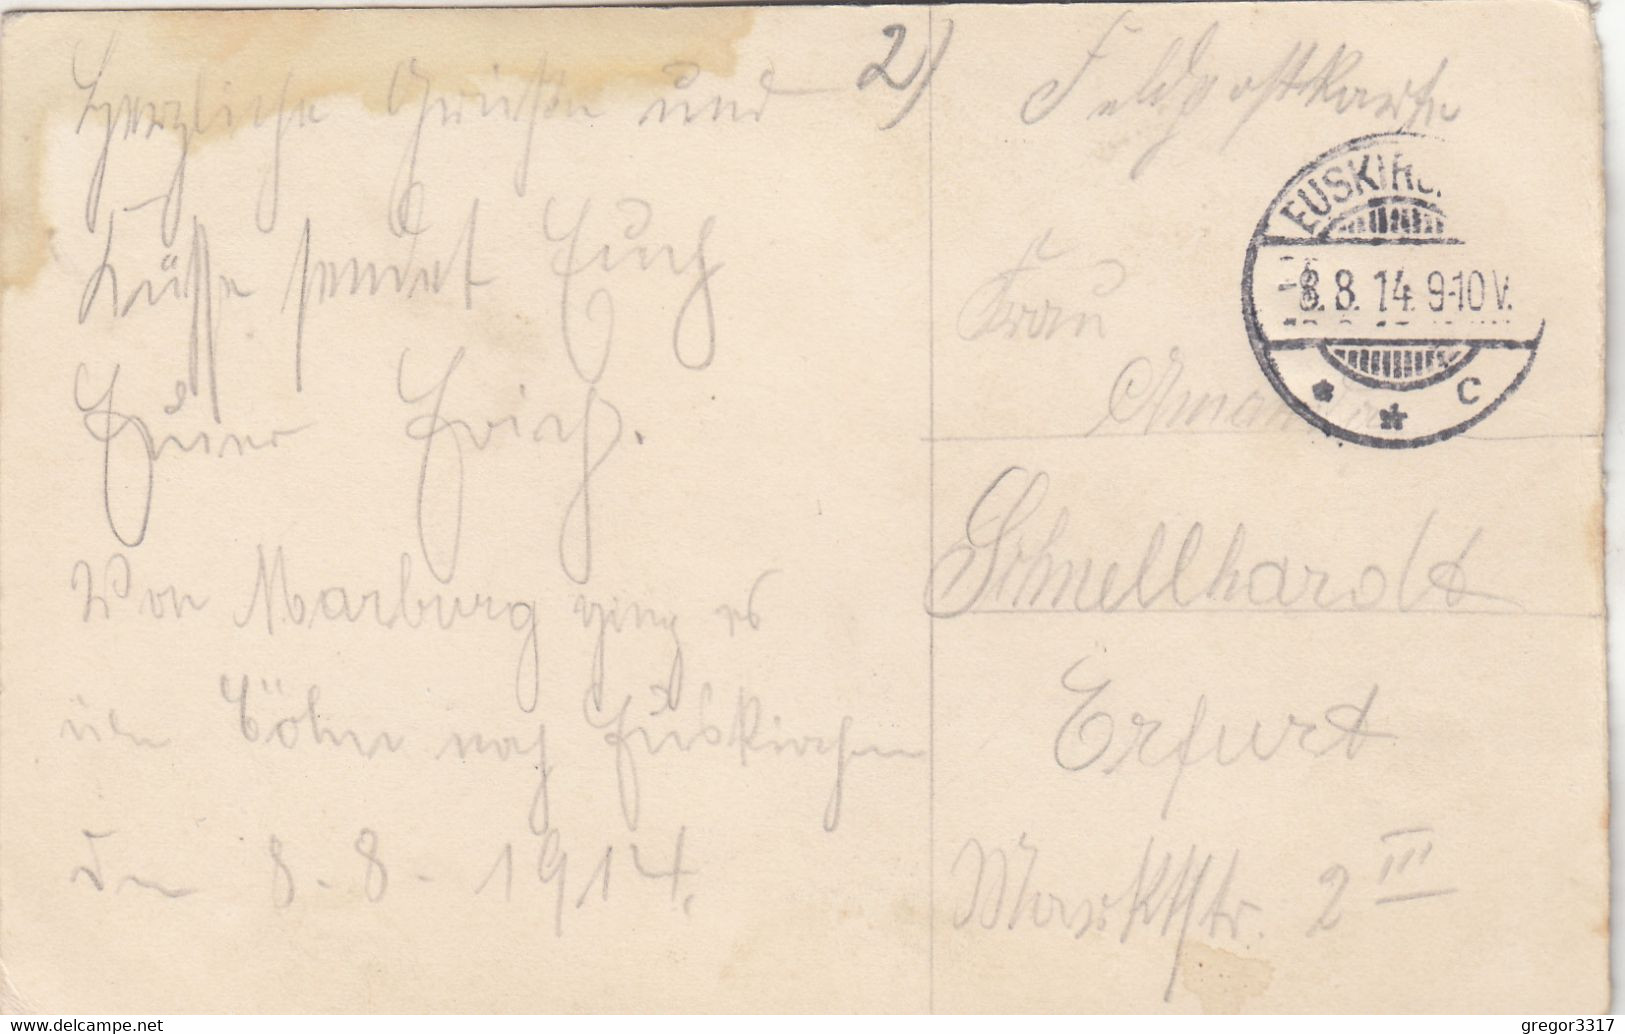 Herzliche Grüße und
Küsse sendet Euch
Euer Erich.
Von Marburg ging es
über Cöln nach Euskirchen
den 8.-8.-1914.
2)
Feldpostkarte
EUSKIRC
8.8.14. 9-10V.
* * c
Frau
Amanda
Schnellhardt
Erfurt
Marktstr. 2 III
gregor3317
www.delcampe.net